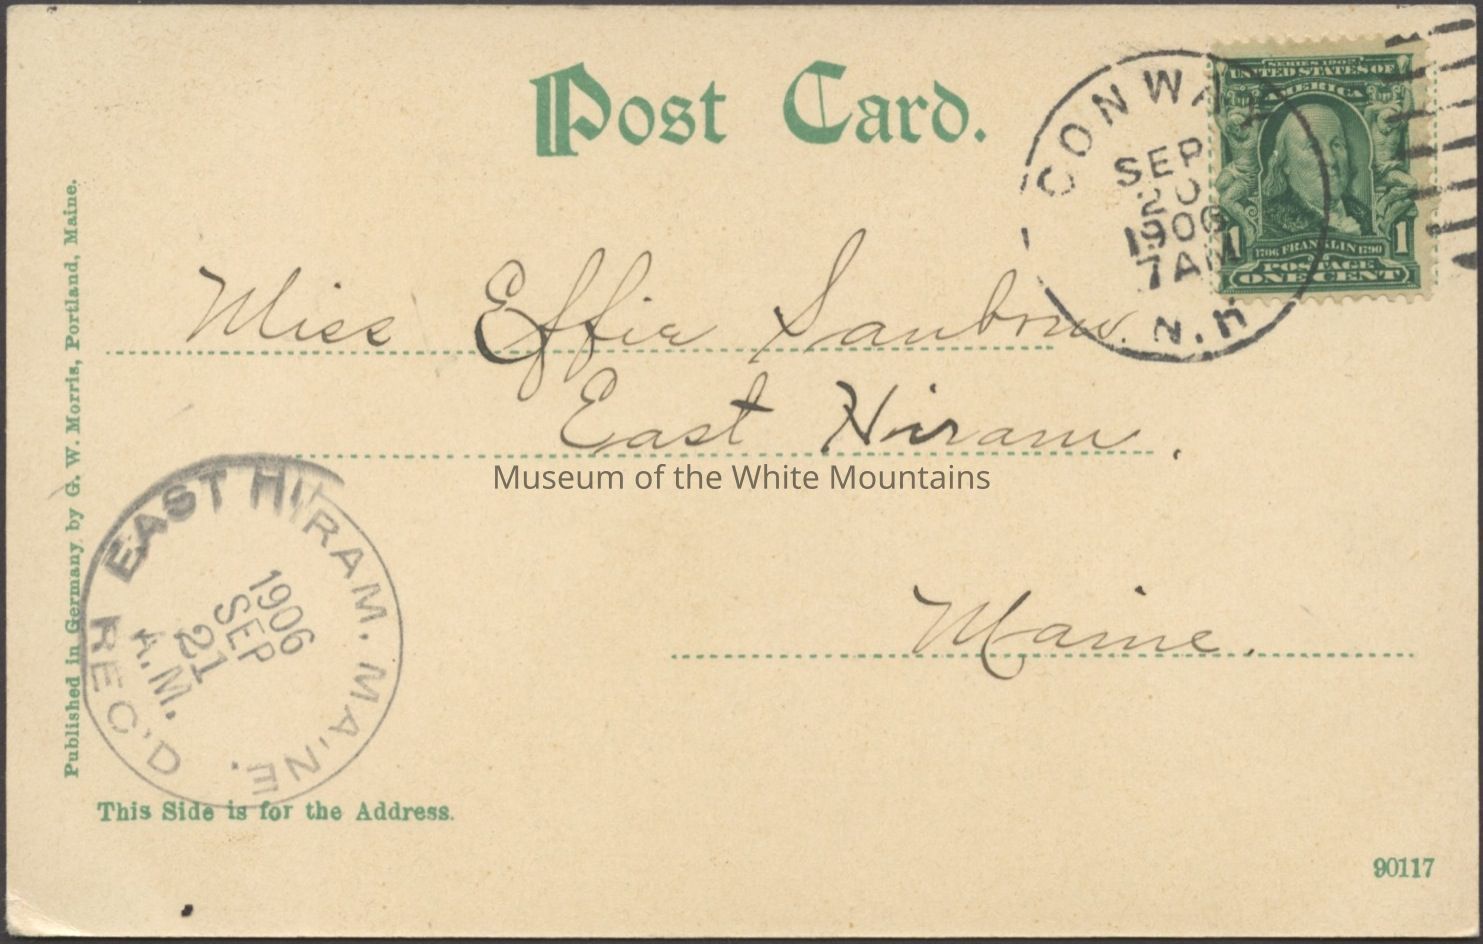 Post Card.
CONWAY
SEP
20
1906
7 AM
N.H
SERIES 1902
UNITED STATES OF
AMERICA
1 1
1706 FRANKLIN 1790
POSTAGE
ONE CENT
Miss Effie Sanborn.
East Hiram.
Museum of the White Mountains
Maine.
EAST HIRAM. MAINE.
1906
SEP
21
A.M.
REC'D
Published in Germany by G. W. Morris, Portland, Maine.
This Side is for the Address.
90117